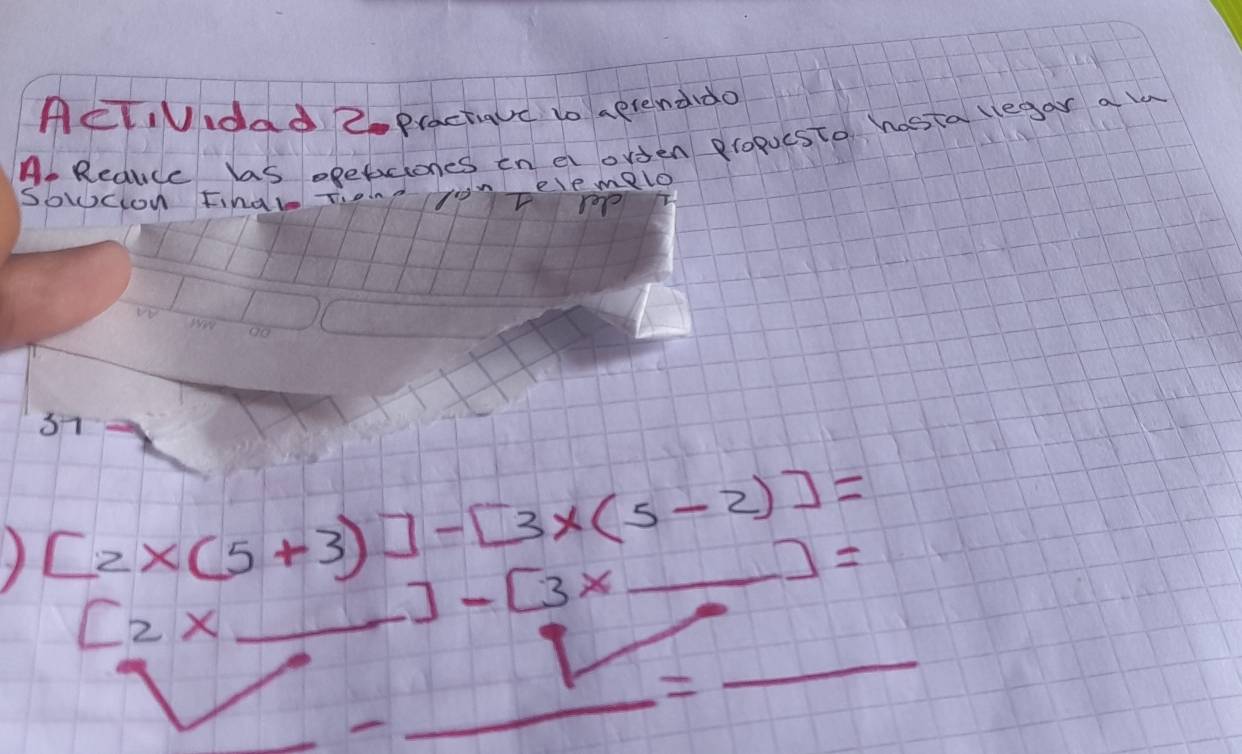 ACTIVIdad 2. practique lo aprendido
A. Reduce las operaciones en el orden propuesto hasta llegar a la
Solucion Final. Tiene un ejemplo
37
) [2 × (5 + 3)] - [3 × (5 - 2)] =
[2 × ____] - [3 × ____] =
____ - ____ = ____